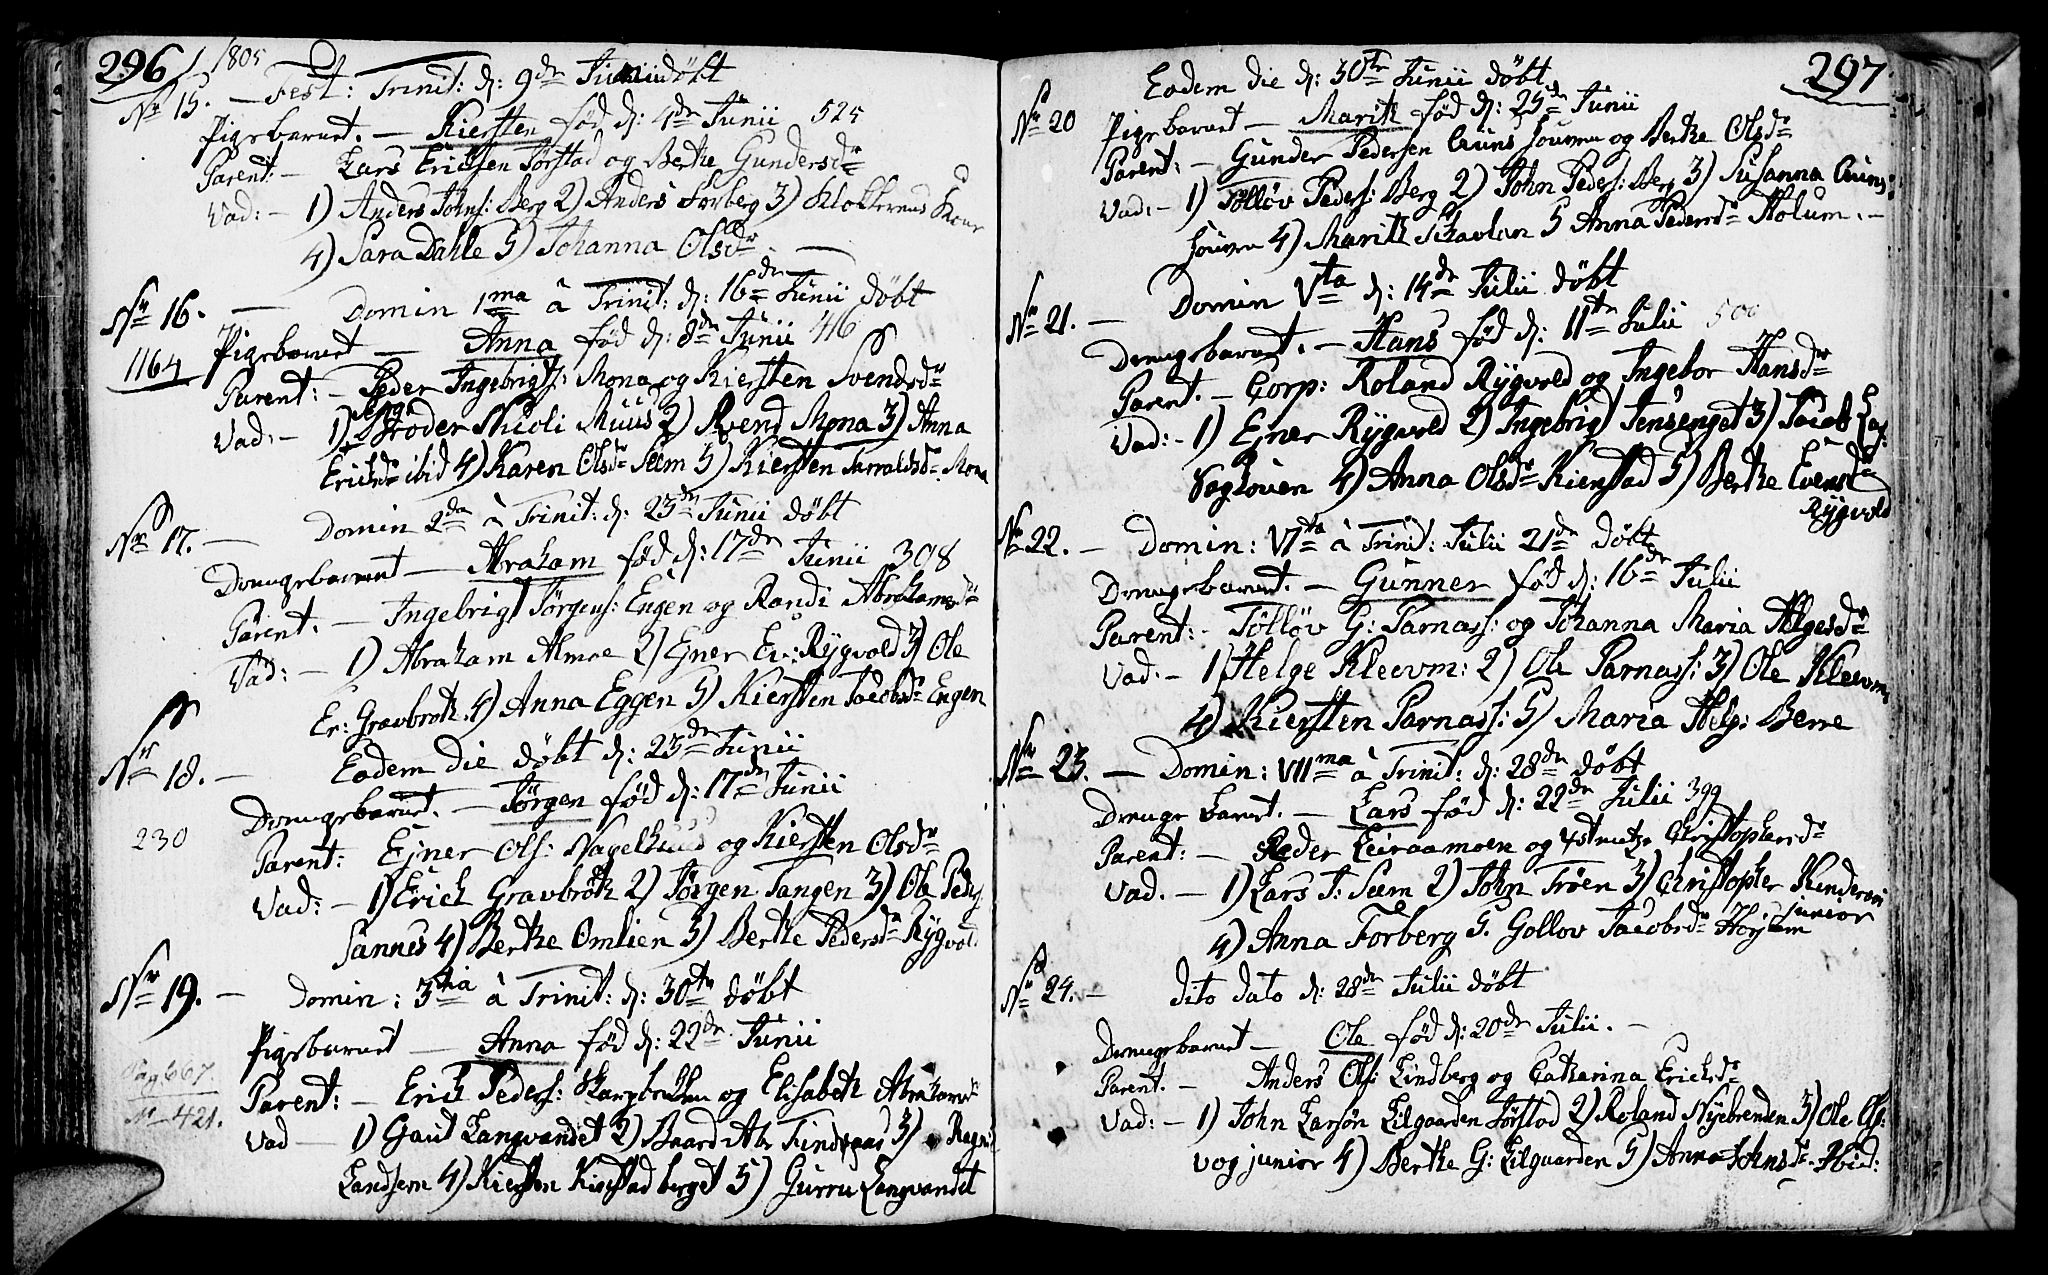 296 / 1805
Nr 15. — Fest: Trinit: d: 9de Junii döbt
Pigebarnet. — Kiersten föd d: 4de Junii 525
Parent: — Lars Ericksen Forstad og Berthe Gundersdr
Vad: — 1) Anders Johns: Berg 2) Anders Forberg 3) Klokkerens Kone
4) Sara Dahle 5) Johanna Olsdr. —
Nr 16. — Domin 1ma à Trinit: d: 16de Junii döbt
1164 Pigebarnet — Anna föd d: 8de Junii 416
Parent: — Peder Ingebrigts: Mona og Kiersten Svendsdr
Vad: — 1) Broder Nicoli Muus 2) Svend Mona 3) Anna
Ericksdr ibid 4) Karen Olsdr Seem 5) Kiersten Tarraldsdr Mona
Nr 17. — Domin 2da à Trinit: d: 23de Junii döbt
Drengebarnet — Abraham föd d: 17de Junii 308
Parent. — Ingebrigt Jörgens: Engen og Randi Abrahamsdr
Vad: — 1) Abraham Almoe 2) Ejner Er: Rÿgvold 3) Ole
Er: Gravbrøt 4) Anna Eggen 5) Kiersten Jacobsdr Engen
Nr 18. — Eodem die döbt d: 23de Junii
Drengebarnet. — Jörgen föd d: 17de Junii
230 Parent: Ejner Ols: Nagelhuus og Kiersten Olsdr
Vad: — 1) Erich Gravbrøt 2) Jörgen Tangen 3) Ole Peders:
Sannes 4) Berthe Omlien 5) Berthe Pedersdr Rÿgvold
Nr 19. — Domin: 3tia à Trinit: d: 30te döbt
Pigebarnet — Anna föd d: 22de Junii
Pag 667. Parent: — Erich Peders: Skarpbekken og Elisabeth Abrahamsdr
N 421. Vad — 1) Gaut Langvandet 2) Baard Ab: Tindsgaas 3)
Landsem 4) Kiersten Kierstad berget 5) Gurru Langvandet
297
Eodem die d: 30te Junii döbt
Nr 20 Pigebarnet — Marith föd d: 25de Junii
Parent: — Gunder Pedersen Auns houven og Berthe Olsdr
Vad: — 1) Tölløv Peders: Berg 2) John Peders: Berg 3) Susanna Auns:
houven 4) Marith Skavlan 5 Anna Pedersdr Holum. —
Domin Vta d: 14de Julii döbt
Nr 21. — Drengebarnet. — Hans föd d: 11te Julii 500
Parent. — Corp: Roland Rÿgvold og Ingebor Hansdr
Vad: — 1) Ejner Rÿgvold 2) Ingebrigt Jensenget 3) Jacob
4) Anna Olsdr Kierstad 5) Berthe Evensdr
Rÿgvold
Nr 22. — Domin: VIta à Trinit: Julii 21de döbt
Drengebarnet. — Gunner föd d: 16de Julii
Parent: — Tölløv G: Parnass: og Johanna Maria Helgesdr
Vad. — 1) Helge Kleevm: 2) Ole Parnass: 3) Ole Kleevm:
4) Kiersten Parnass: 5) Maria Helg: Berre
Nr 23. — Domin: VIIma à Trinit: d: 28de döbt
Drenge barnet. — Lars föd d: 22de Julii 399
Parent: — Peder Leiraamoen og Christophersdr
Vad. — 1) Lars J: Seem 2) John Tröen 3) Christopher
junior
4) Anna Forberg 5. Gollov Jacobsdr Höjem
Nr 24. — dito dato d: 28de Julii döbt
Drengebarnet — Ole föd d: 20de Julii. —
Parent. — Anders Ols: Lindberg og Catharina Ericksdr
Vad: — 1) John Larsön Lilgaarden Forstad 2) Roland Nÿebrenden 3) Ole Ols:
vog junior 4) Berthe G: Lilgaarden 5) Anna Johnsdr. Ibid: